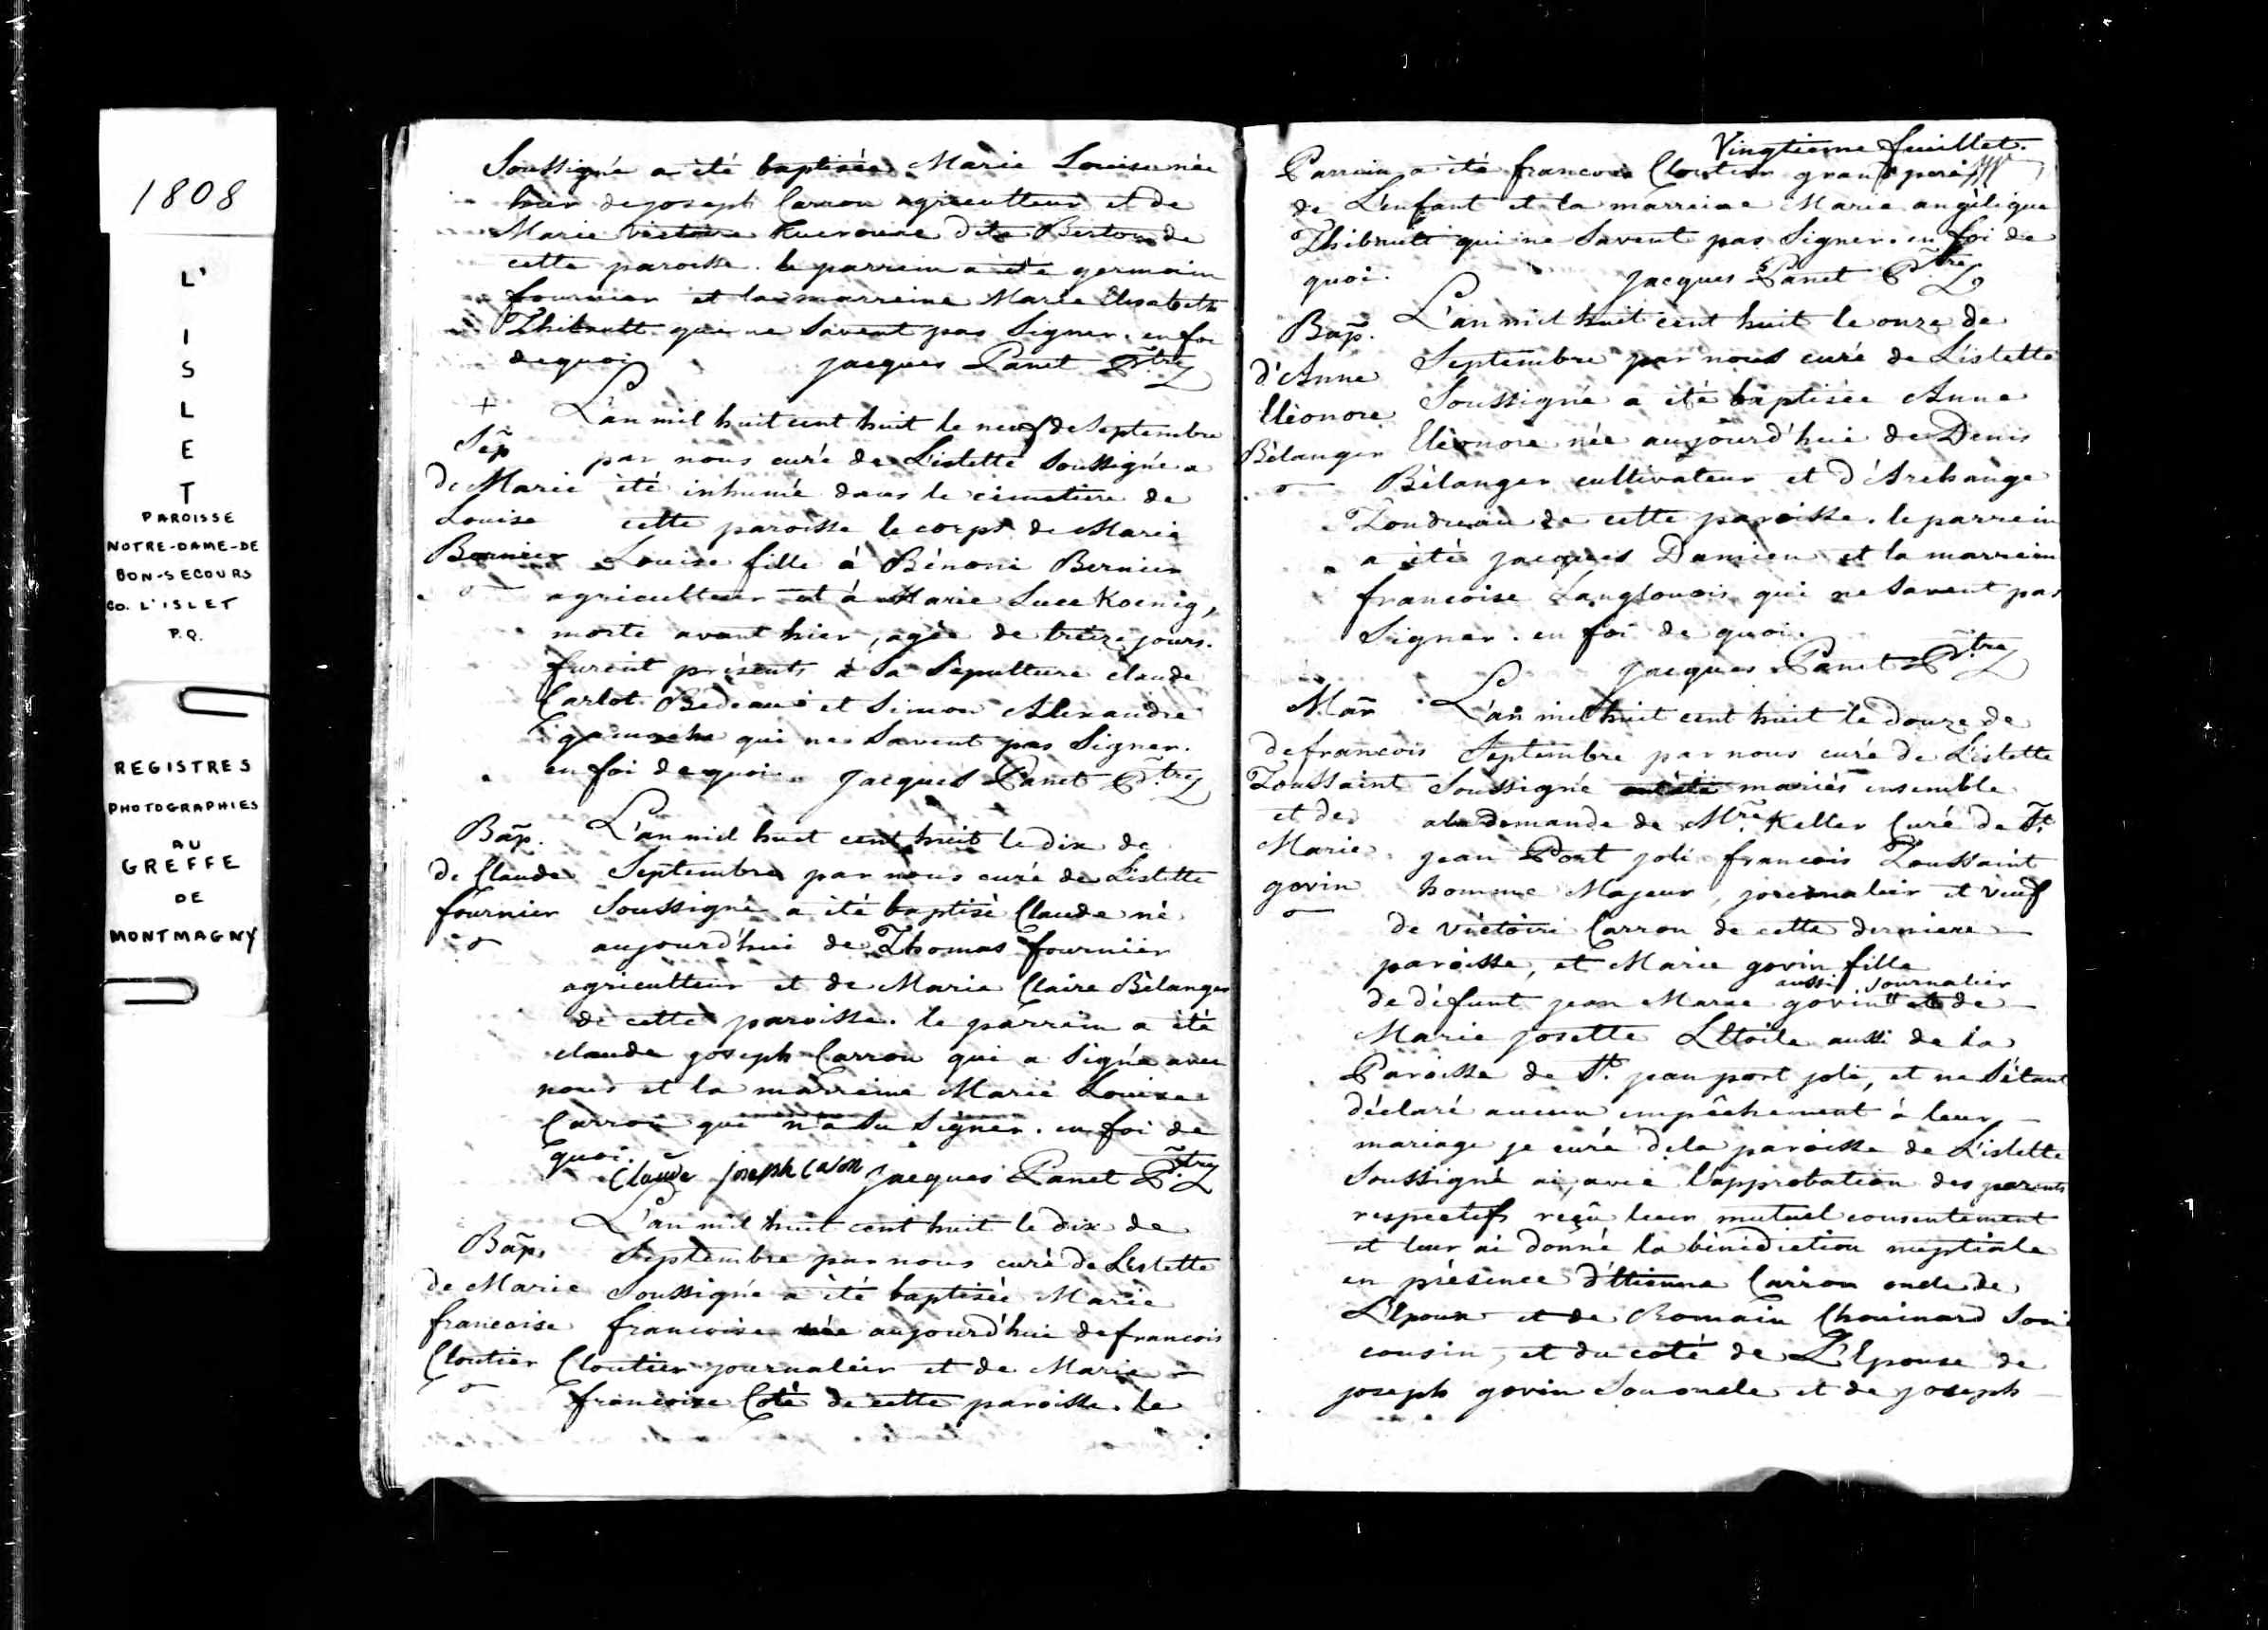 1808
L'
I
S
L
E
T
PAROISSE
NOTRE-DAME-DE
BON-SECOURS
CO. L'ISLET
P.Q.
REGISTRES
PHOTOGRAPHIES
AU
GREFFE
DE
MONTMAGNY
Soussigné a été baptisée Marie Louise née
hier de joseph Carron agriculteur et de
Marie victoire dite de
cette paroisse. le parrein a été germain
fournier et la marreine Marie Elisabeth
Thibault qui ne Savent pas Signer. en foi
de quoi jacques Panet Ptre
+
L'an mil huit cent huit le neuf de Septembre
Sep par nous curé de L'islette Soussigné a
De Marie été inhumé dans le cimetiere de
Louise cette paroisse le corps de Marie
Bernier Louise fille à Bénoni Bernier
agriculteur et à Marie Luce Koenig,
morte avant hier, agée de treize jours.
furent présents à Sa Sépulture claude
Carlot Bedeau et Simon Alexandre
gamache qui ne Savent pas Signer.
en foi de quoi. jacques Panet Ptre
Bap. L'an mil huit cent huit le dix de
de Claude Septembre par nous curé de L'islette
fournier Soussigné a été baptisé Claude né
aujourd'hui de Thomas fournier
agriculteur et de Marie Claire Bélanger
de cette paroisse. le parrein a été
claude joseph Carron qui a Signé avec
nous et la marreine Marie Louise
Carron qui n'a Su Signer. en foi de
quoi.
Claude joseph Caron jacques Panet Ptre
L'an mil huit cent huit le dix de
Bap. Septembre par nous curé de L'islette
de Marie Soussigné a été baptisée Marie
francoise francoise née aujourd'hui de francois
Cloutier Cloutier journalier et de Marie
francoise Coté de cette paroisse. le
Vingtieme feuillet.
Parrein a été francois Cloutier grand pere
de L'enfant et la marreine Marie angélique
Thibault qui ne Savent pas Signer. en foi de
quoi. jacques Panet Ptre
Bap. L'an mil huit cent huit le onze de
d'Anne Septembre par nous curé de L'islette
Eléonore Soussigné a été baptisée Anne
Bélanger Eléonore née aujourd'hui de Denis
Bélanger cultivateur et d'Archange
de cette paroisse. le parrein
a été jacques Damien et la marrein
francoise Langlouois qui ne Savent pas
Signer. en foi de quoi.
jacques Panet Ptre
Mar L'an mil huit cent huit le douze de
de francois Septembre par nous curé de L'islette
Toussaint Soussigné ont été mariés ensemble
et de a la demande de Mre Keller Curé de St
Marie jean Port joli francois Toussaint
govin homme Majeur, journalier et veuf
de victoire Carron de cette derniere
paroisse, et Marie govin fille
aussi Journalier
de défunt jean Marie govin et de
Marie josette Letoile aussi de la
Paroisse de St. jean port joli, et ne S'étant
déclaré aucun empêchement à leur
mariage je curé de la paroisse de L'islette
Soussigné ai, avec l'approbation des parents
respectifs reçû leur mutuel consentement
et leur ai donné la bénédiction nuptiale
en présence d'Etienne Carron oncle de
L'Epoux et de Romain Chouinard Son
cousin, et du coté de L'Epouse de
joseph govin Son oncle et de joseph